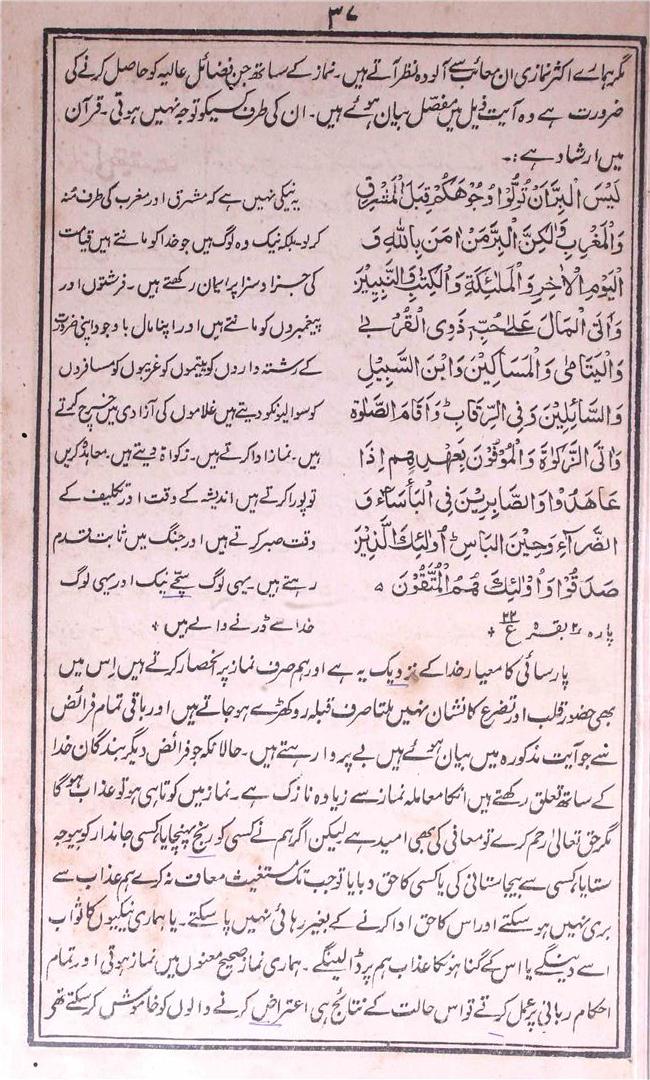 ۳۷
مگر ہمارے اکثر نمازی ان معائب سے آلودہ نظر آتے ہیں۔ نماز کے ساتھ جن فضائل عالیہ کو حاصل کرنے کی
ضرورت ہے وہ آیت ذیل میں مفصل بیان ہوئے ہیں۔ ان کی طرف کسیکو توجہ نہیں ہوتی۔ قرآن
میں ارشاد ہے :۔
لَيْسَ الْبِرَّ اَنْ تُوَلُّوْا وُجُوْهَكُمْ قِبَلَ الْمَشْرِقِ
وَالْمَغْرِبِ وَلٰكِنَّ الْبِرَّ مَنْ اٰمَنَ بِاللّٰهِ وَ
الْيَوْمِ الْاٰخِرِ وَالْمَلٰٓئِكَةِ وَالْكِتٰبِ وَالنَّبِيّٖنَ
وَاٰتَى الْمَالَ عَلٰى حُبِّهٖ ذَوِى الْقُرْبٰى
وَالْيَتَامٰى وَالْمَسَاكِيْنَ وَابْنَ السَّبِيْلِ
وَالسَّائِلِيْنَ وَفِى الرِّقَابِ وَاَقَامَ الصَّلٰوةَ
وَاٰتَى الزَّكٰوةَ وَالْمُوْفُوْنَ بِعَهْدِهِمْ اِذَا
عَاهَدُوْا وَالصَّابِرِيْنَ فِى الْبَأْسَآءِ وَ
الضَّرَّآءِ وَحِيْنَ الْبَاسِ اُولٰئِكَ الَّذِيْنَ
صَدَقُوْا وَاُولٰئِكَ هُمُ الْمُتَّقُوْنَ ٥
پارہ ۲ بقرہ ع ۲۲ +
یہ نیکی نہیں ہے کہ مشرق اور مغرب کی طرف مُنہ
کر لو۔ بلکہ نیک وہ لوگ ہیں جو خدا کو مانتے ہیں قیامت
کی جزا و سزا پر ایمان رکھتے ہیں۔ فرشتوں اور
پیغمبروں کو مانتے ہیں اور اپنا مال باوجود اپنی ضرورت
کے رشتہ داروں کو یتیموں کو غریبوں کو مسافروں
کو سوالیونکو دیتے ہیں غلاموں کی آزادی میں خرچ کرتے
ہیں۔ نماز ادا کرتے ہیں۔ زکواۃ دیتے ہیں۔ معاہدہ کریں
تو پورا کرتے ہیں اندیشہ کے وقت اور تکلیف کے
وقت صبر کرتے ہیں اور جنگ میں ثابت قدم
رہتے ہیں۔ یہی لوگ سچّے نیک اور یہی لوگ
خدا سے ڈرنے والے ہیں +
پارسائی کا معیار خدا کے نزدیک یہ ہے اور ہم صرف نماز پر انحصار کرتے ہیں اِس میں
بھی حضور قلب اور تضرع کا نشان نہیں ملتا صرف قبلہ رو کھڑے ہو جاتے ہیں اور باقی تمام فرائض
سے جو آیت مذکورہ میں بیان ہوئے ہیں بے پروا رہتے ہیں۔ حالانکہ جو فرائض دیگر بندگان خدا
کے ساتھ تعلق رکھتے ہیں انکا معاملہ نماز سے زیادہ نازک ہے۔ نماز میں کوتاہی ہو تو عذاب ہوگا
مگر حق تعالیٰ رحم کرے تو معافی کی بھی امید ہے لیکن اگر ہم نے کسی کو رنج پہنچایا، کسی جاندار کو بیوجہ
ستایا، کسی سے بیجا ستانی کی یا کسی کا حق دبایا تو جب تک مستغیث معاف نہ کرے ہم عذاب سے
بری نہیں ہو سکتے اور اس کا حق ادا کرنے کے بغیر رہائی نہیں پا سکتے۔ یا ہماری نیکیوں کا ثواب
اسے دینگے یا اس کے گناہونکا عذاب ہم پر ڈالینگے۔ ہماری نماز صحیح معنوں میں نماز ہوتی اور تمام
احکام ربانی پر عمل کرتے تو اس حالت کے نتائج ہی اعتراض کرنے والوں کو خاموش کر سکتے تھے